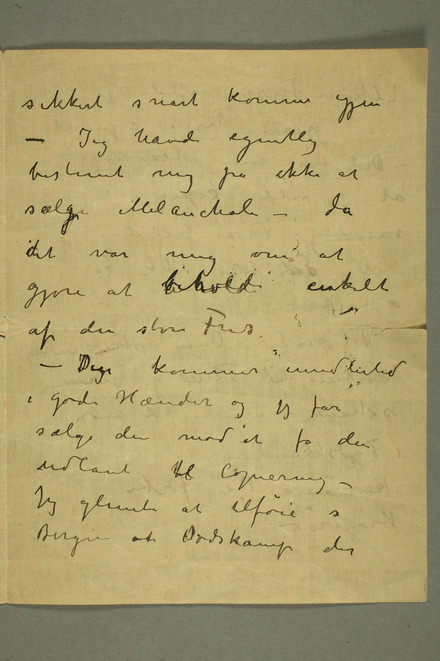 sikkert snart komme igjen
— Jeg havde egentlig
bestemt mig på ikke at
sælge Melancholi — da
det var mig om at
gjøre at beholde enkelt
af den store Fris
— Den kommer imidlertid
i gode Hænder og jeg får
sælge den mod at få den
udlånt til Copiering —
Jeg glemte at tilføie
Bergen at Dødskamp der